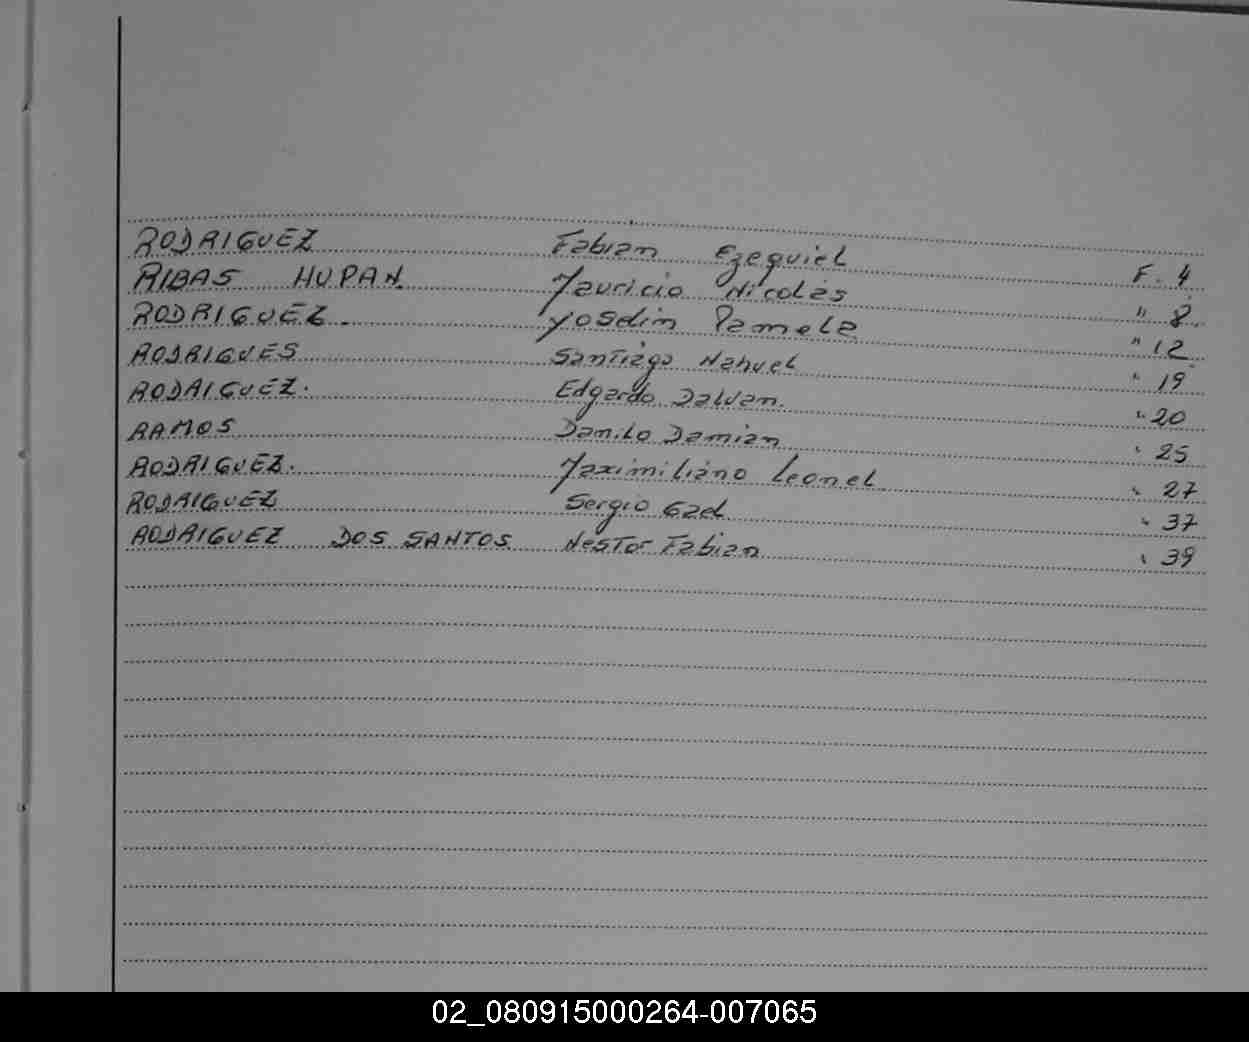 RODRIGUEZ Fabian Ezequiel F. 4
RIBAS HUPAN Mauricio Nicolás " 8
RODRIGUEZ. Yoselin Pamela " 12
RODRIGUES Santiago Nahuel " 19
RODRIGUEZ. Edgardo Dalvan. " 20
RAMOS Danilo Damian " 25
RODRIGUEZ. Maximiliano Leonel " 27
RODRIGUEZ Sergio " 37
RODRIGUEZ DOS SANTOS Nestor Fabian " 39
02_080915000264-007065